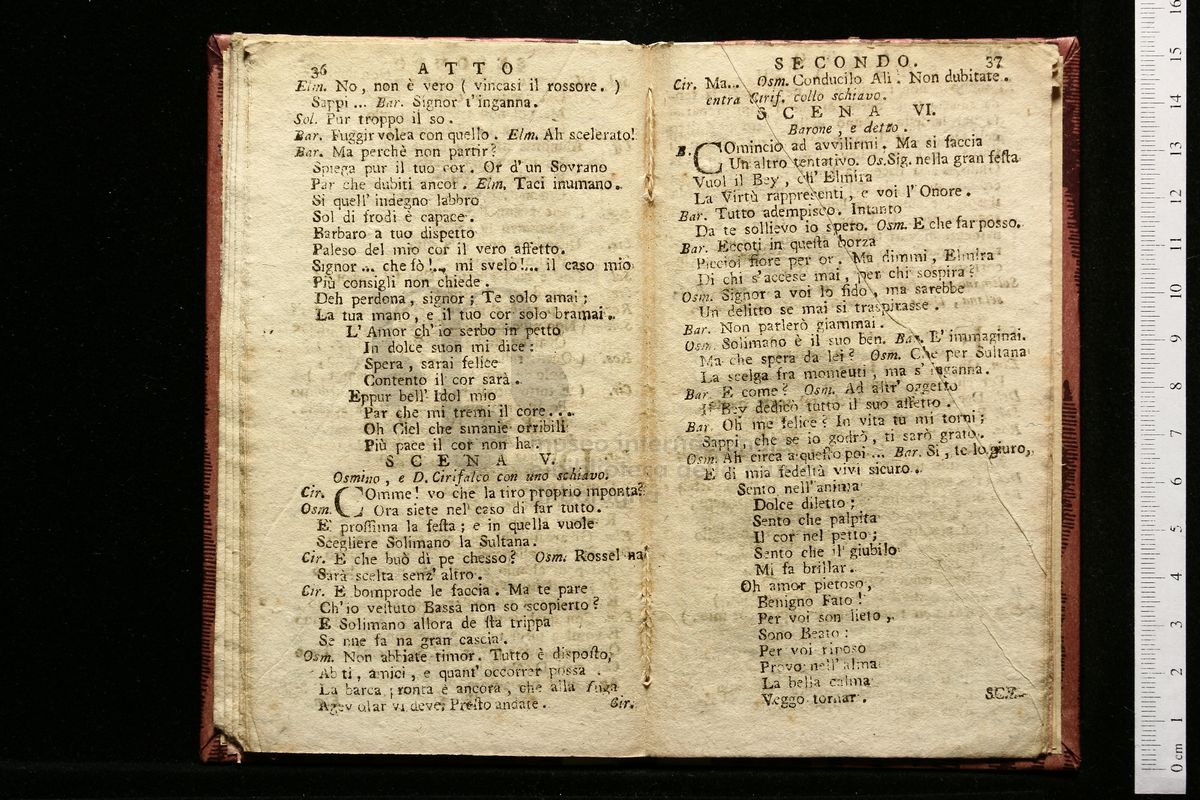 36 ATTO
Elm. No, non è vero ( vincasi il rossore. )
Sappi ... Bar. Signor t'inganna.
Sol. Pur troppo il so.
Bar. Fuggir volea con quello. Elm. Ah scelerato!
Bar. Ma perchè non partir?
Spiega pur il tuo cor. Or d'un Sovrano
Par che dubiti ancor. Elm. Taci inumano.
Si quell' indegno labbro
Sol di frodi è capace.
Barbaro a tuo dispetto
Paleso del mio cor il vero affetto.
Signor ... che fò!... mi svelo!... il caso mio
Più consigli non chiede.
Deh perdona, signor; Te solo amai;
La tua mano, e il tuo cor solo bramai.
L' Amor ch' io serbo in petto
In dolce suon mi dice:
Spera, sarai felice
Contento il cor sarà.
Eppur bell' Idol mio
Par che mi tremi il core...
Oh Ciel che smanie orribili
Più pace il cor non ha.
SCENA V.
Osmino, e D. Cirifalco con uno schiavo.
Cir. COmme! vo che la tiro proprio mponta?
Osm. Ora siete nel caso di far tutto.
E' prossima la festa; e in quella vuole
Scegliere Solimano la Sultana.
Cir. E che buò di pe chesso? Osm. Rossel na
Sarà scelta senz' altro.
Cir. E bomprode le faccia. Ma te pare
Ch'io vestuto Bassà non so scopierto?
E Solimano allora de sta trippa
Se nne fa na gran cascia.
Osm. Non abbiate timor. Tutto è disposto,
Abiti, amici, e quant' occorrer possa
La barca pronta è ancora, che alla fuga
Agevolar vi deve; Presto andate. Cir.
SECONDO. 37
Cir. Ma... Osm. Conducilo Ali. Non dubitate.
entra Cirif. collo schiavo.
SCENA VI.
Barone, e detto.
B. COmincio ad avvilirmi. Ma si faccia
Un altro tentativo. Os. Sig. nella gran festa
Vuol il Bey, ch' Elmira
La Virtù rappresenti, e voi l' Onore.
Bar. Tutto adempisco. Intanto
Da te sollievo io spero. Osm. E che far posso.
Bar. Eccoti in questa borza
Picciol fiore per or. Ma dimmi, Elmira
Di chi s'accese mai, per chi sospira?
Osm. Signor a voi lo fido, ma sarebbe
Un delitto se mai si traspirasse.
Bar. Non parlerò giammai.
Osm. Solimano è il suo ben. Bar. E' immaginai.
Ma che spera da lei? Osm. Che per Sultana
La scelga fra momenti, ma s' inganna.
Bar. E come? Osm. Ad altr' oggetto
Il Bey dedicò tutto il suo affetto.
Bar. Oh me felice? In vita tu mi torni;
Sappi, che se io godrò, ti sarò grato.
Osm. Ah circa a questo poi ... Bar. Si, te lo giuro,
E di mia fedeltà vivi sicuro.
Sento nell'anima
Dolce diletto;
Sento che palpita
Il cor nel petto;
Sento che il giubilo
Mi fa brillar.
Oh amor pietoso,
Benigno Fato!
Per voi son lieto,
Sono Beato:
Per voi riposo
Provo nell' alma
La bella calma
Veggo tornar. SCE-